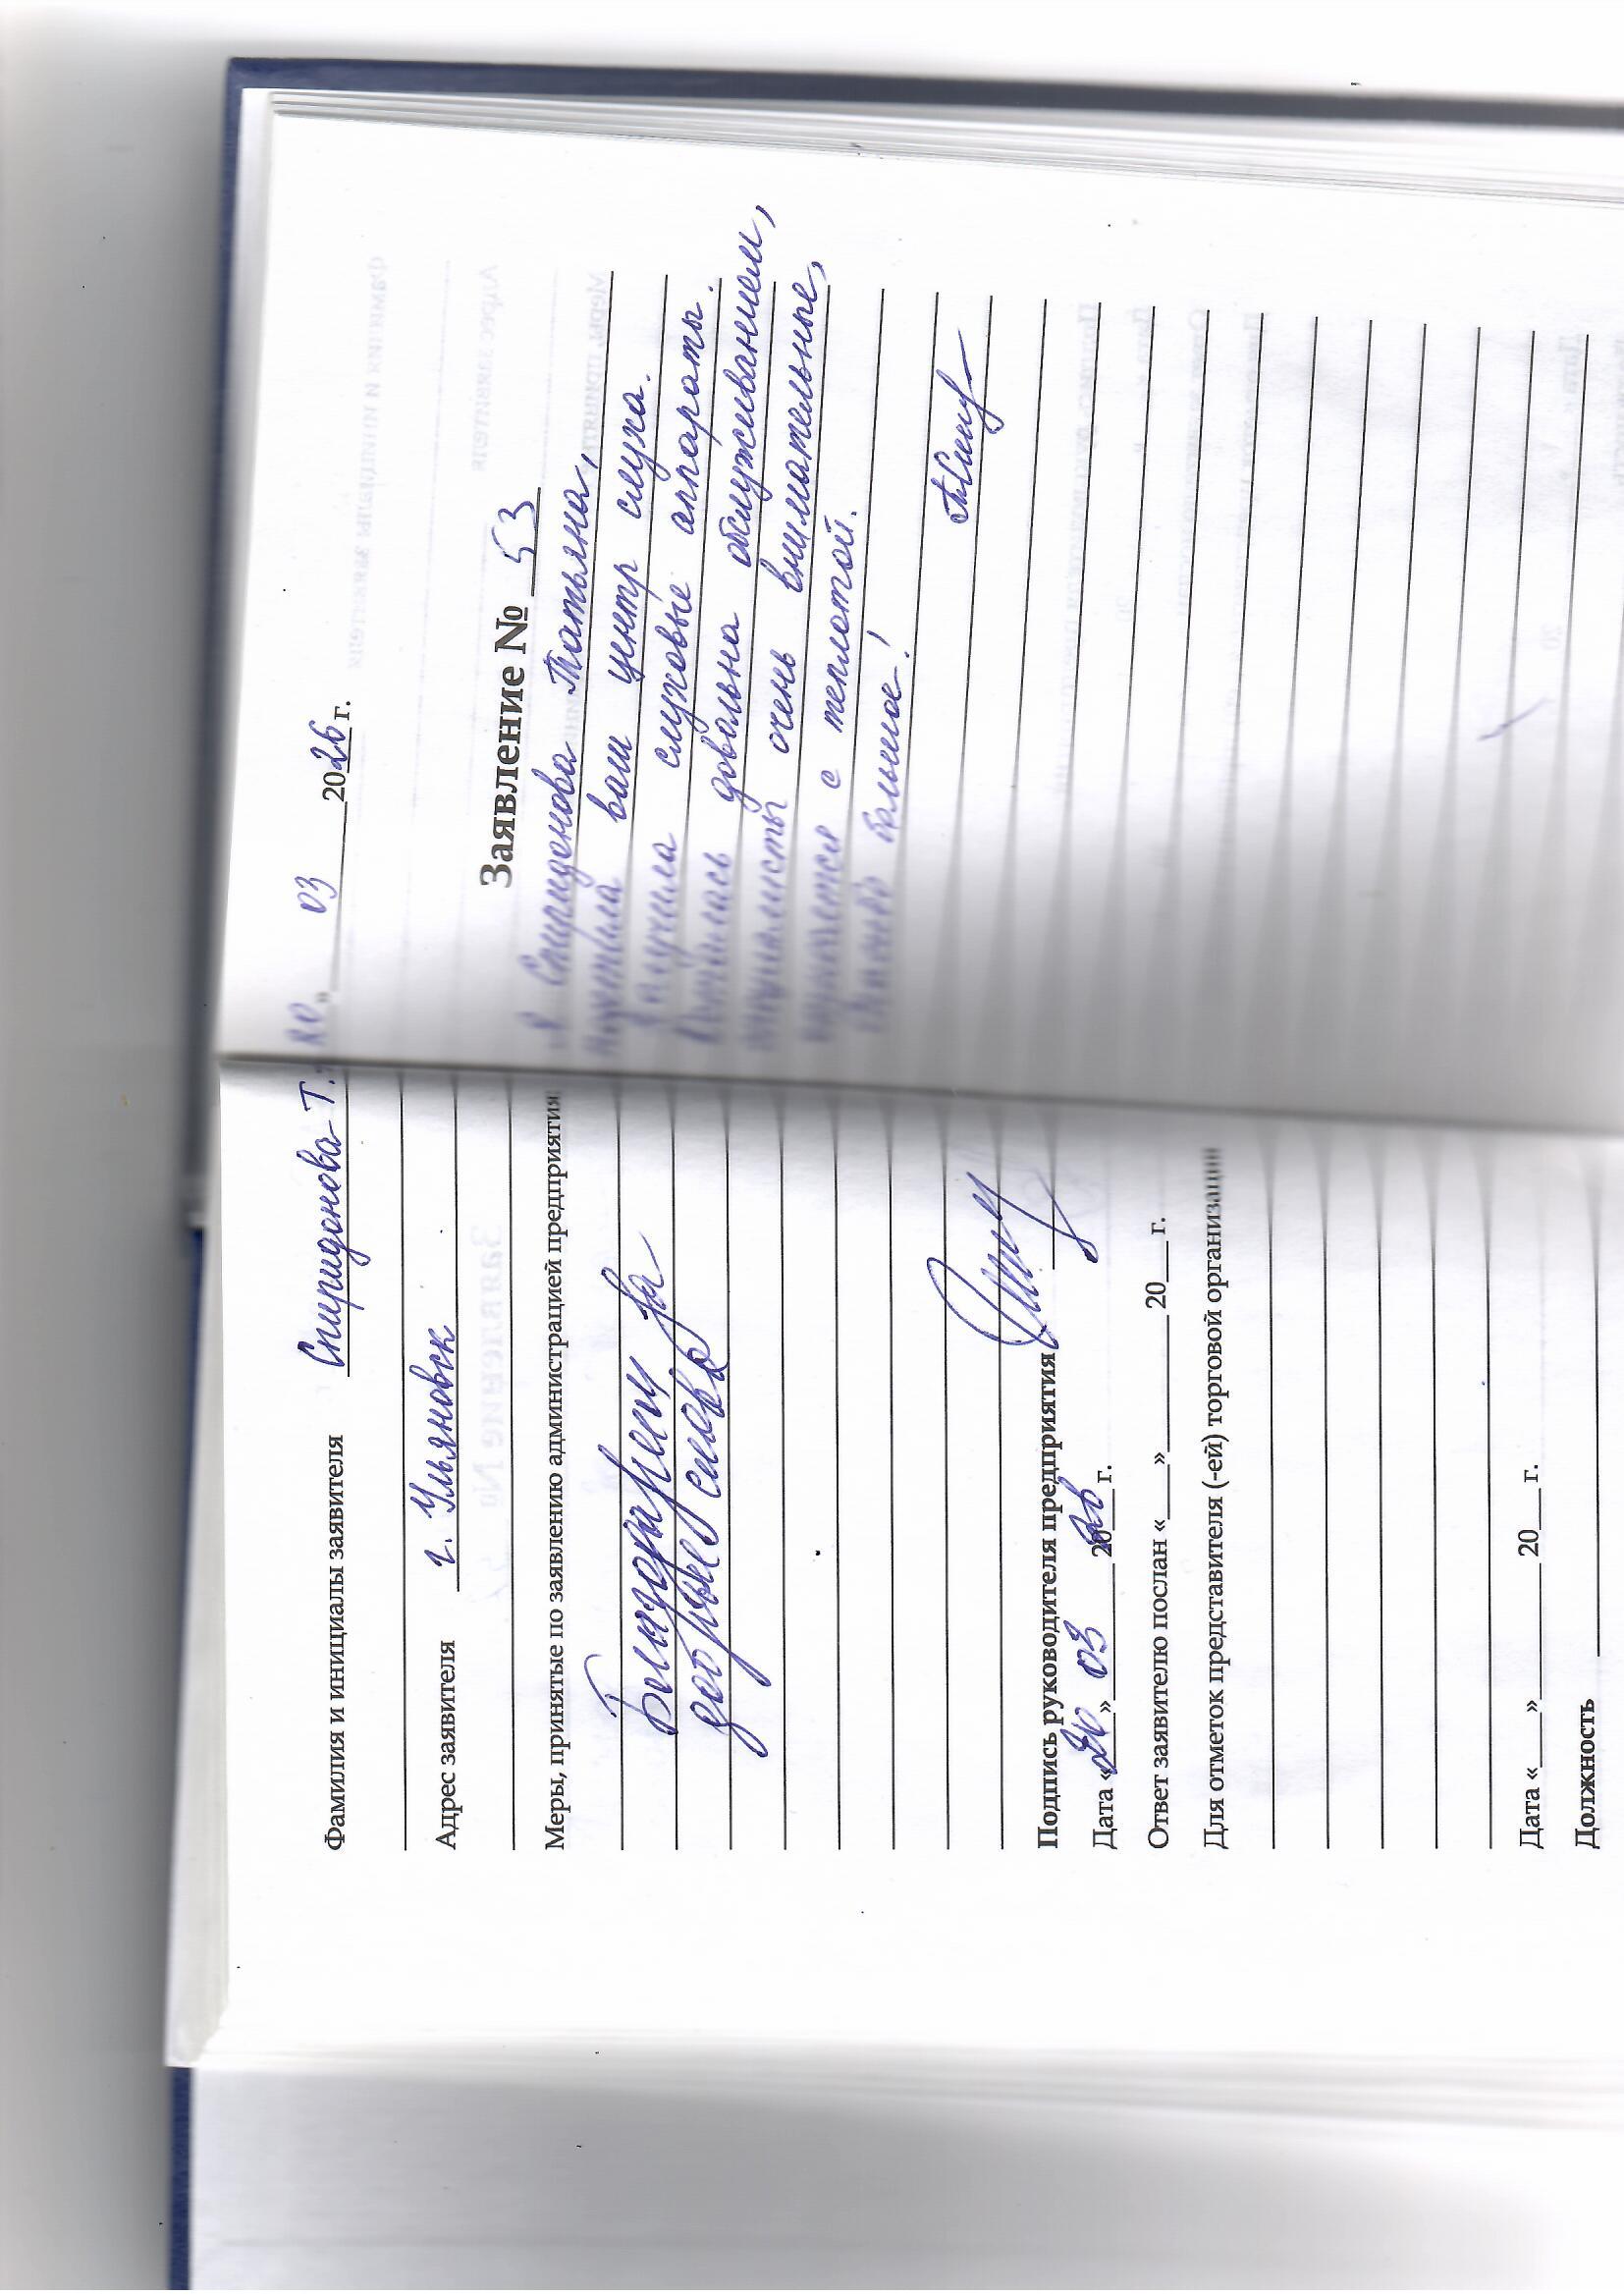 Фамилия и инициалы заявителя Спиридонова Т.
Адрес заявителя г. Ульяновск
Меры, принятые по заявлению администрацией предприятия
Благодарим за
добрые слова
Подпись руководителя предприятия
Дата «20» 03 2026 г.
Ответ заявителю послан «___» ______ 20__ г.
Для отметок представителя (-ей) торговой организации
Дата «___» ______ 20__ г.
Должность
20 » 03 2026 г.
Заявление № 53
Я Спиридонова Татьяна,
посетила ваш центр слуха.
Я получила слуховые аппараты.
Осталась довольна обслуживанием,
специалисты очень внимательные,
с теплотой.
Спасибо большое!